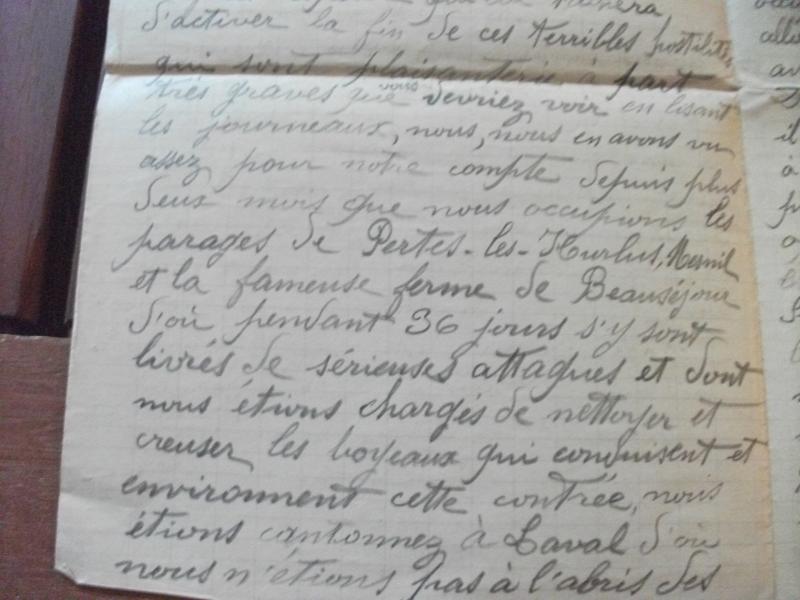 d'activer la fin de ces terribles hostilités
qui sont plaisanterie à part
très graves que vous devriez voir en lisant
les journeaux, nous, nous en avons vu
assez pour notre compte depuis plus
deux mois que nous occupions les
parages de Pertes-les-Hurlus, Mesnil
et la fameuse ferme de Beauséjour
d'où pendant 36 jours s'y sont
livrés de sérieuses attaques et dont
nous étions chargés de nettoyer et
creuser les boyeaux qui conduisent et
environnent cette contrée, nous
étions cantonnez à Laval d'où
nous n'étions pas à l'abris des